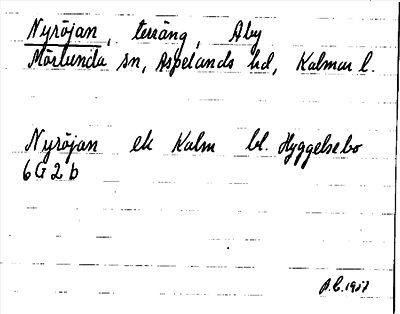 Nyröjan, terräng, Åby
Mörlunda sn, Aspelands hd, Kalmar l.
Nyröjan ek Kalm bl. Hyggelsebo
6G2b